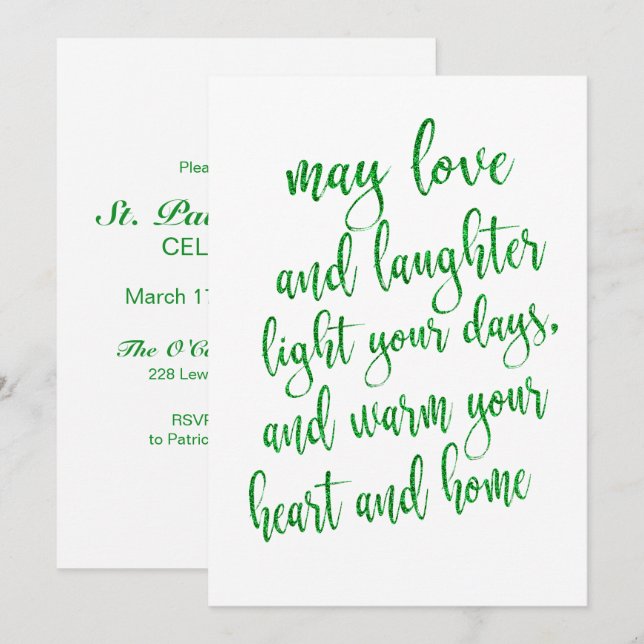 Plea
St. Pa
CEL
March 17
The O'C
228 Lew
RSVP
to Patric
may love
and laughter
light your days,
and warm your
heart and home